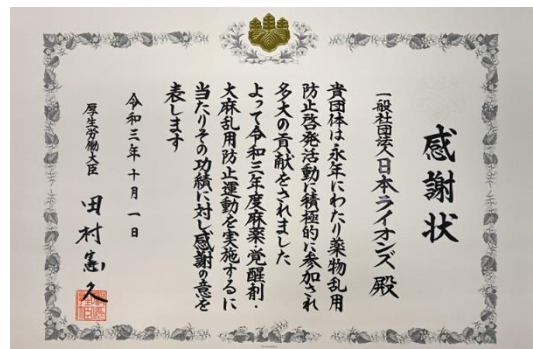 感謝状
一般社団法人日本ライオンズ殿
貴団体は永年にわたり薬物乱用
防止啓発活動に積極的に参加され
多大の貢献をされました
よって令和三年度麻薬・覚醒剤・
大麻乱用防止運動を実施するに
当たりその功績に対し感謝の意を
表します
令和三年十月一日
厚生労働大臣 田村憲久